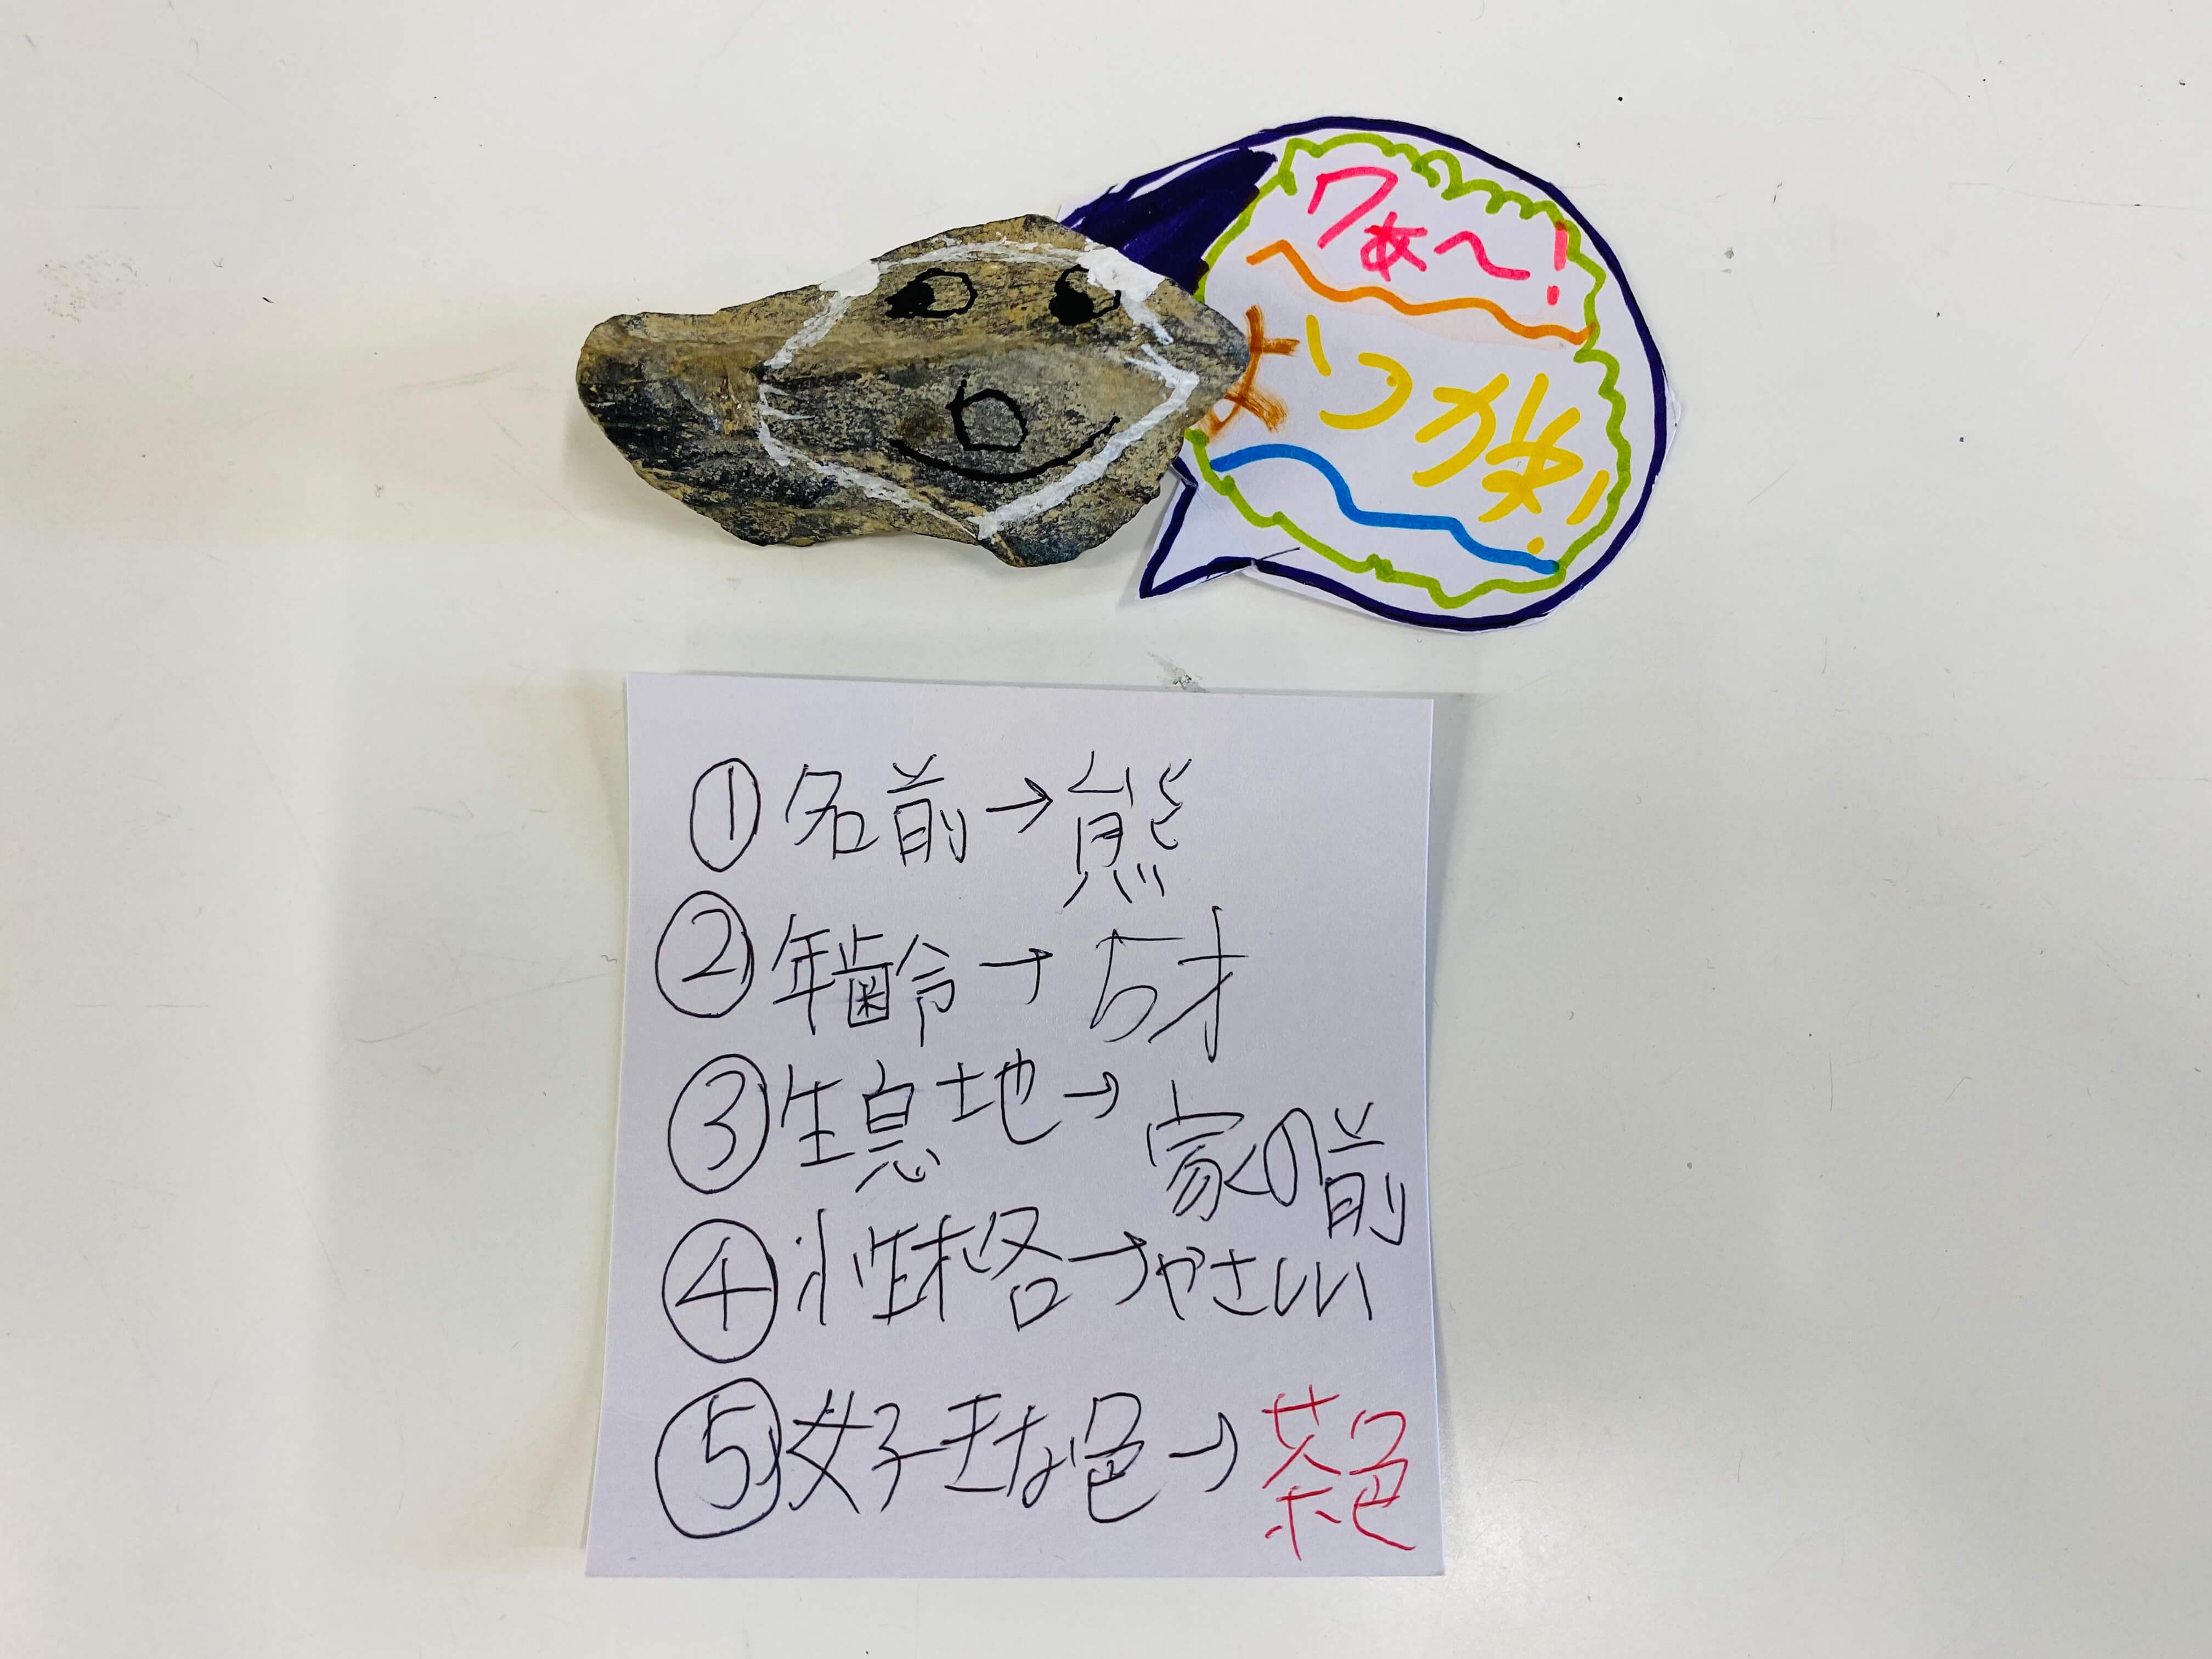 ワぁ~!
いつか笑!
①名前→熊
②年齢→5才
③生息地→家の前
④性格→やさしい
⑤好きな色→茶色